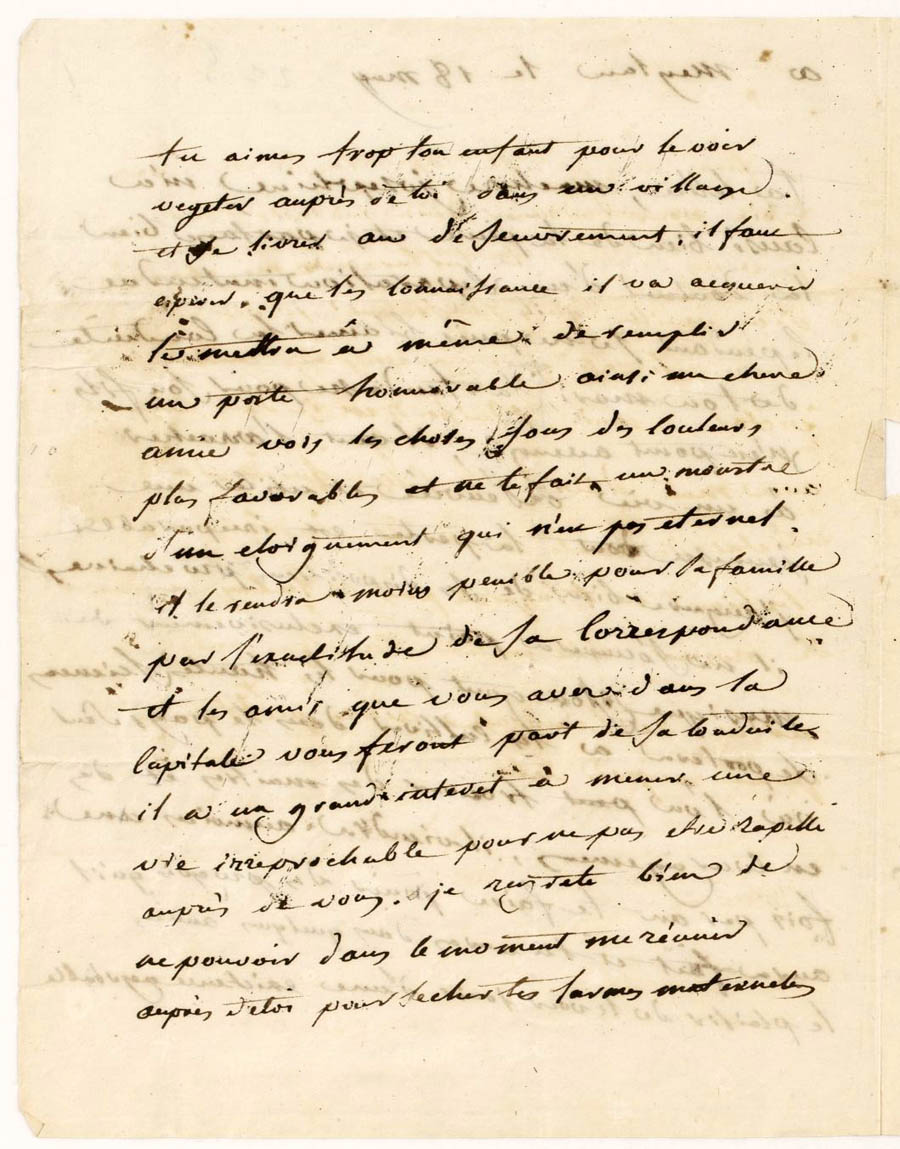 tu aimes trop ton enfant pour le voir
vegeter auprès de toi dans un village.
et se livrer au desoeuvrement, il faut
esperer que les connaissance il va acquerir
le mettra à même de remplir
un poste honnorable ainsi ma chere
amie vois les choses sous des couleurs
plus favorables et ne te fait un monstre
d'un eloignement qui n'est pas eternel.
il le rendra moins penible pour sa famille
par l'exactitude de sa correspondance
et les amis que vous avez dans la
capitale vous feront part de sa conduite
il a un grand interet à mener une
vie irreprochable pour ne pas etre rapellé
auprès de vous. je regrete bien de
ne pouvoir dans le moment me réunir
auprès de toi pour secher tes larmes maternelles